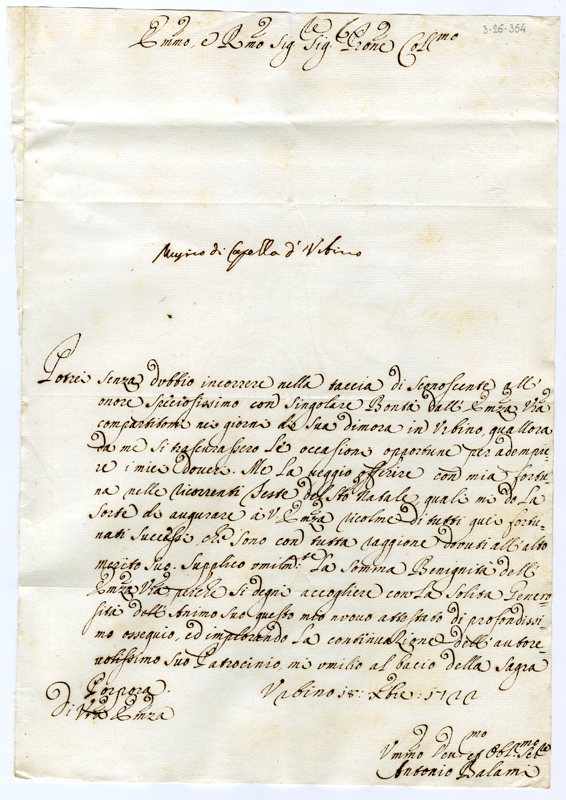 3-26-354
Emmo, e Rmo Sigre Sig. Prone Collmo
Musico di Capella d'Urbino
Potrei senza dubbio incorrere nella taccia di sconoscente all'
onore speciosissimo con singolare Bontà dall'Emza Vra
compartitomi ne giorni di Sua dimora in Urbino, quallora
da me si trascurassero le occasione opportune per adempie
re i miei doveri. Me la veggio offerire con mia fortu
na nelle ricorrenti Feste del Sto Natale quali mi do la
sorte di augurare à V Emza ricolme di tutti quei fortu
nati successi che sono con tutta raggione dovuti all'alto
merito suo. Supplico umilmte la somma Benignità dell'
Emza Vra perche si degni accogliere con la solita Genero=
sità dell'Animo suo questo mio nuovo attestato di profondissi
mo ossequio, ed implorando la continuazione dell'autore
volissimo suo Patrocinio, mi umilio al bacio della Sagra
Porpora. Urbino 18: Xbre: 1722
Di Vra Emza
Ummo Devmo et Obbmo Sere
Antonio Balami